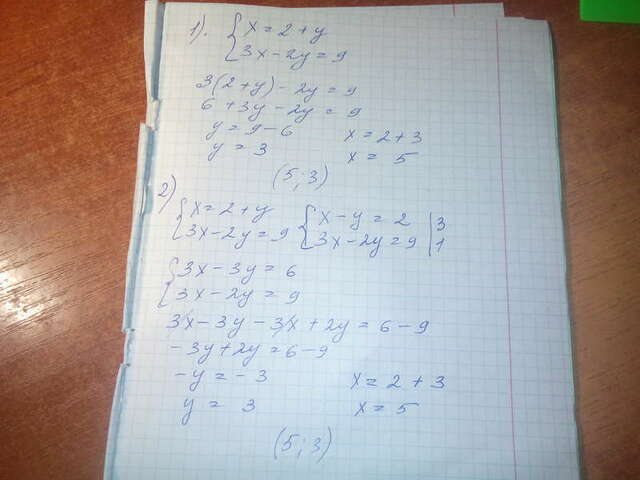 1). { x = 2 + y
3x - 2y = 9
3(2+y) - 2y = 9
6 + 3y - 2y = 9
y = 9 - 6 x = 2 + 3
y = 3 x = 5
(5; 3)
2)
{ x = 2 + y { x - y = 2 | 3
3x - 2y = 9 3x - 2y = 9 | 1
{ 3x - 3y = 6
3x - 2y = 9
3x - 3y - 3x + 2y = 6 - 9
- 3y + 2y = 6 - 9
- y = - 3 x = 2 + 3
y = 3 x = 5
(5; 3)